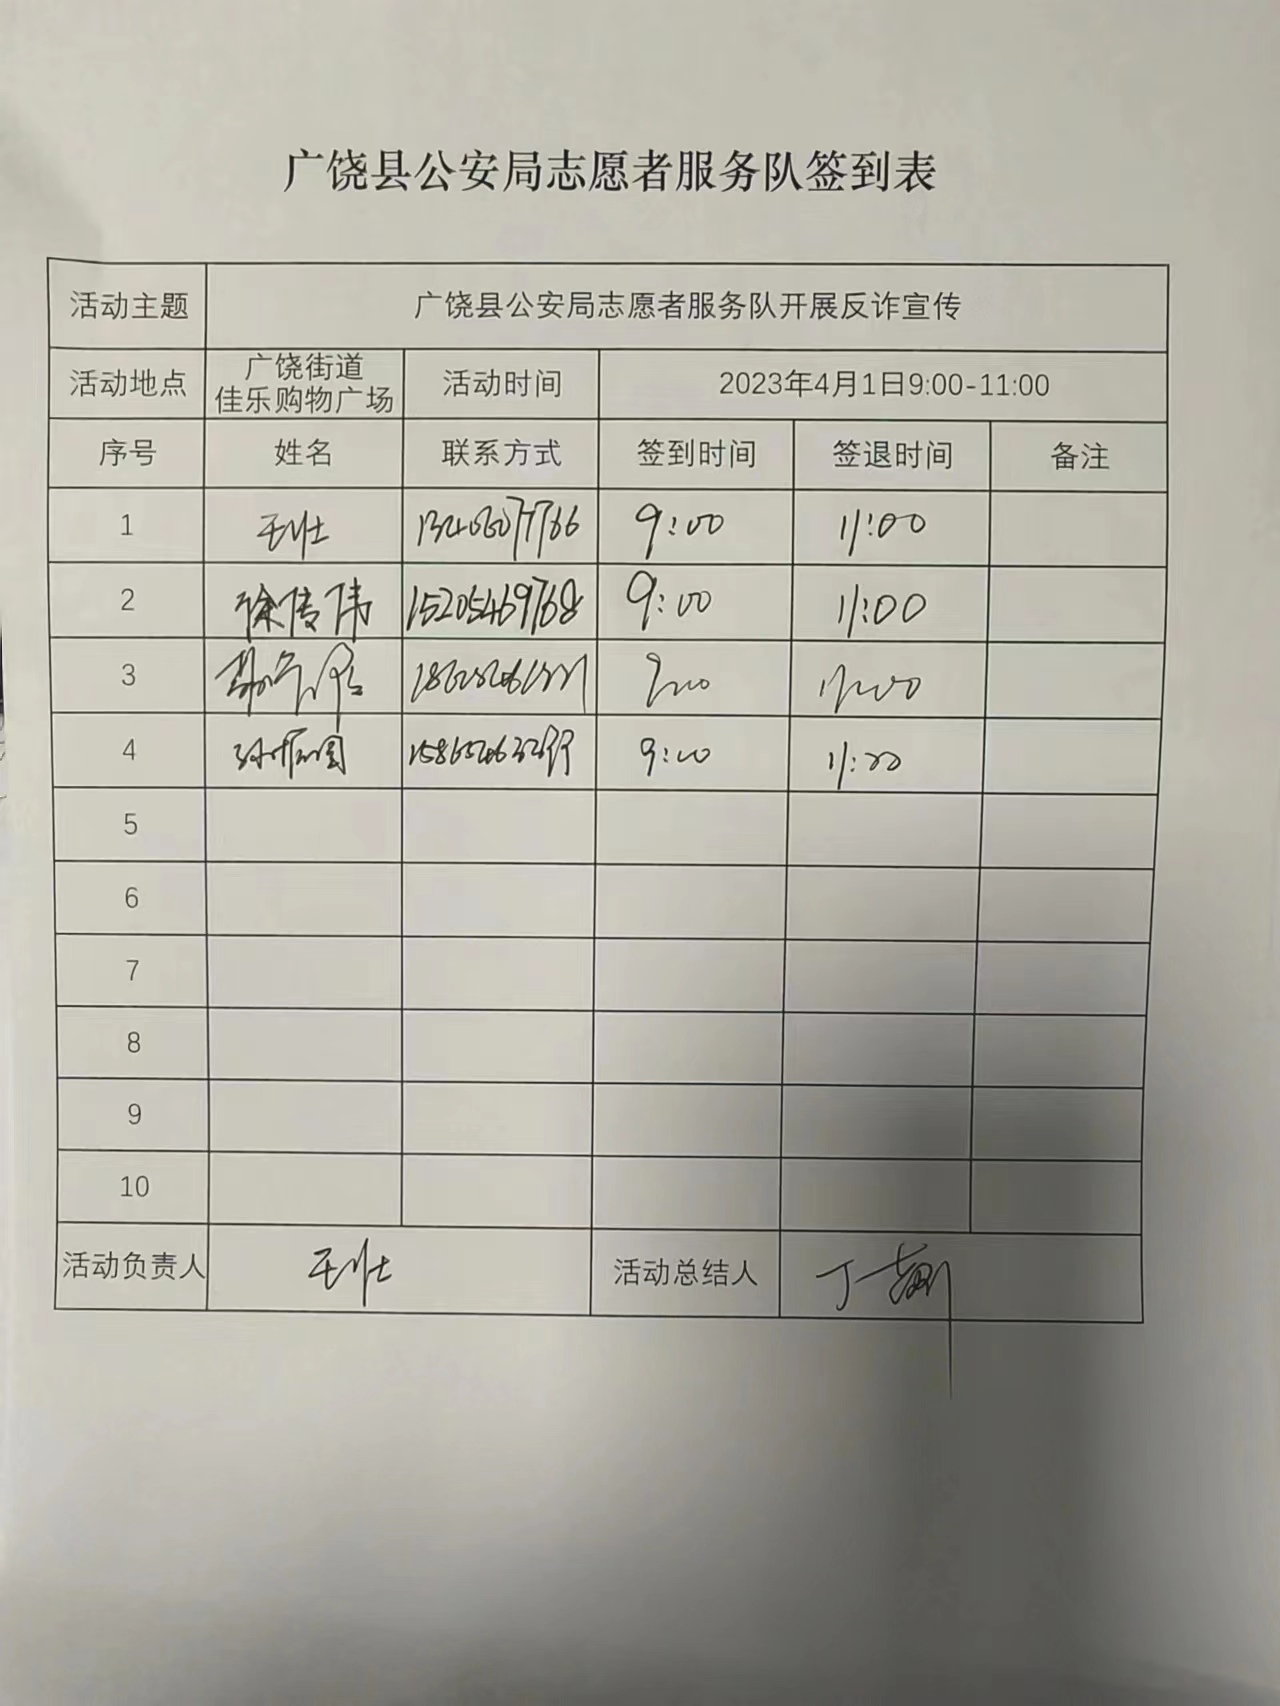 广饶县公安局志愿者服务队签到表
活动主题 广饶县公安局志愿者服务队开展反诈宣传
活动地点 广饶街道 佳乐购物广场 活动时间 2023年4月1日9:00-11:00
序号 姓名 联系方式 签到时间 签退时间 备注
1 9:00 11:00
2 徐传伟 15205469768 9:00 11:00
3
4 9:00 11:00
5
6
7
8
9
10
活动负责人 活动总结人 丁